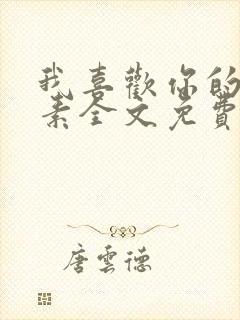 我喜歡你的
素全文免費
唐雲德